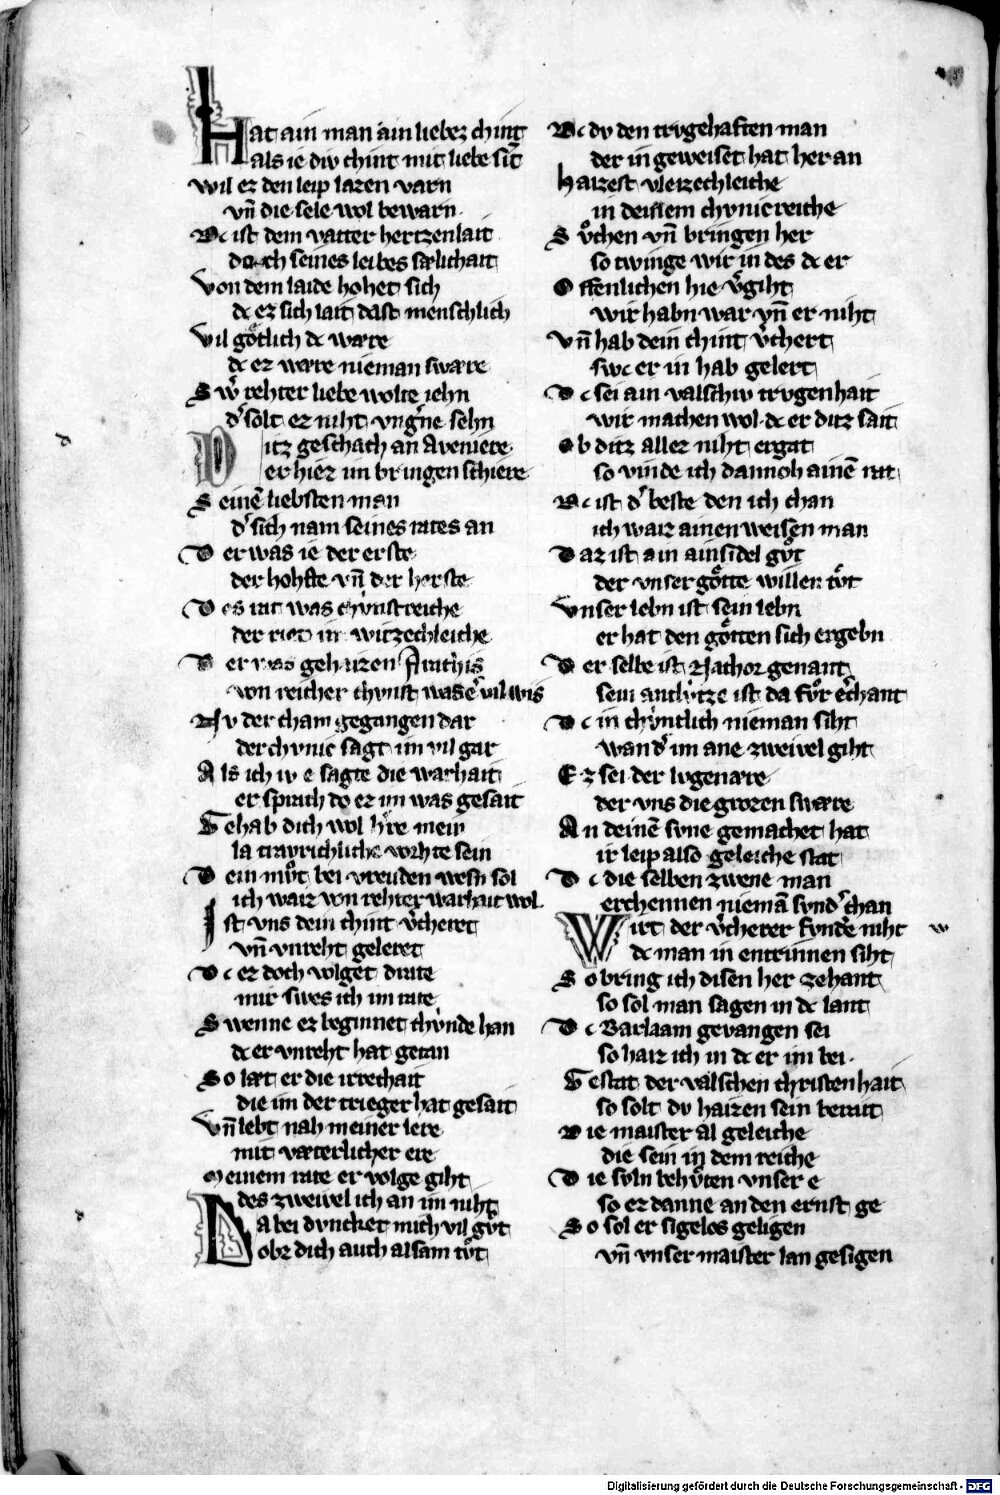 Hat ain man ain liebez chint
als ie div chint mit liebe sīt
Wil er den leip lazen varn
vn̄ die sele wol bewarn
Dc ist dem vatter hertzen lait
durch seines leibes sælichait
Von dem laide hohet sich
dc ez sich lait dast menschlich
Vil gotlich dc wære
dc ez wære nieman swære
Swˀ rehter liebe wolte iehn
dˀ solt ez niht vngˀne sehn
Ditz geschach an Aveniere
er hiez im bringen schiere
Seinē liebsten man
dˀ sich nam seines rates an
Der was ie der erste
der hohste vn̄ der herste
Des rat was chvnstreiche
der riet im witzechleiche
Der was gehaizen Arachis
von reicher chvnst was eˀ vil wis
Nv der cham gegangen dar
der chvnic sagt im vil gar
Als ich iv e sagte die warhait
er sprach do ez im was gesait
Gehab dich wol hˀre mein
la travrichliche vorhte sein
Dein mvͦt bei vreuden wesn sol
ich waiz von rehter warhait wol
Ist vns dein chint vˀcheret
vn̄ vnreht geleret
Dc ez doch volget drate
mir swes ich im rate
Swenne ez beginnet chvnde han
dc er vnreht hat getan
So læt er die irrechait
die im der trieger hat gesait
Vn̄ lebt nah meiner lere
mit væterlicher ere
Meinem rate er volge giht
des zweivel ich an im niht
Da bei dvncket mich vil gvͦt
obz dich auch alsam tvͦt
Dc dv den trvgehaften man
der in geweiset hat her an
Haizest vleizechleiche
in deinem chvnicreiche
Svͦchen vn̄ bringen her
so twinge wir in des dc er
Offenlichen hie vˀgiht
wir habn war vn̄ er niht
Vn̄ hab dein chint vˀchert
swc er in hab gelert
Dc sei ain valschiv trvgenhait
wir machen wol dc er ditz sait
Ob ditz allez niht ergat
so vinde ich dannoh ainē rat
Dc ist dˀ beste den ich chan
ich waiz ainen weisen man
Daz ist ain ainsidel gvͦt
der vnser gotte willen tvͦt
Vnser lebn ist sein lebn
er hat den gotten sich ergebn
Der selbe ist Nachor genant
sein antlvtze ist da fvͦr eˀchant
Dc in chvntlich nieman siht
wan dˀ im ane zweivel giht
Ez sei der lvgenære
der vns die grozen swære
An deinē svne gemachet hat
ir leip also geleiche stat
Dc die selben zwene man
erchennen niemā svndˀ chan
Wirt der vˀcherer fvndē niht
dc man in entrinnen siht
So bring ich disen her zehant
so sol man sagen in dc lant
Dc Barlaam gevangen sei
so haiz ich in dc er im bei
Gestat der valschen christenhait
so solt dv haizen sein berait
Die maister al geleiche
die sein in dem reiche
Die svln behvͦten vnser e
so ez danne an den ernst ge
So sol er sigelos geligen
vn̄ vnser maister lan gesigen
w
Digitalisierung gefördert durch die Deutsche Forschungsgemeinschaft - DFG